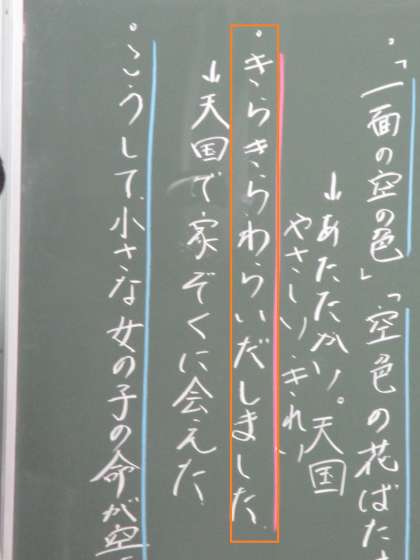 ・「一面の空の色」「空色の花ばた
→あたたかい。天国
やさしい・きれい
・きらきらわらいだしました。
→天国で家ぞくに会えた
・こうして、小さな女の子の命が空